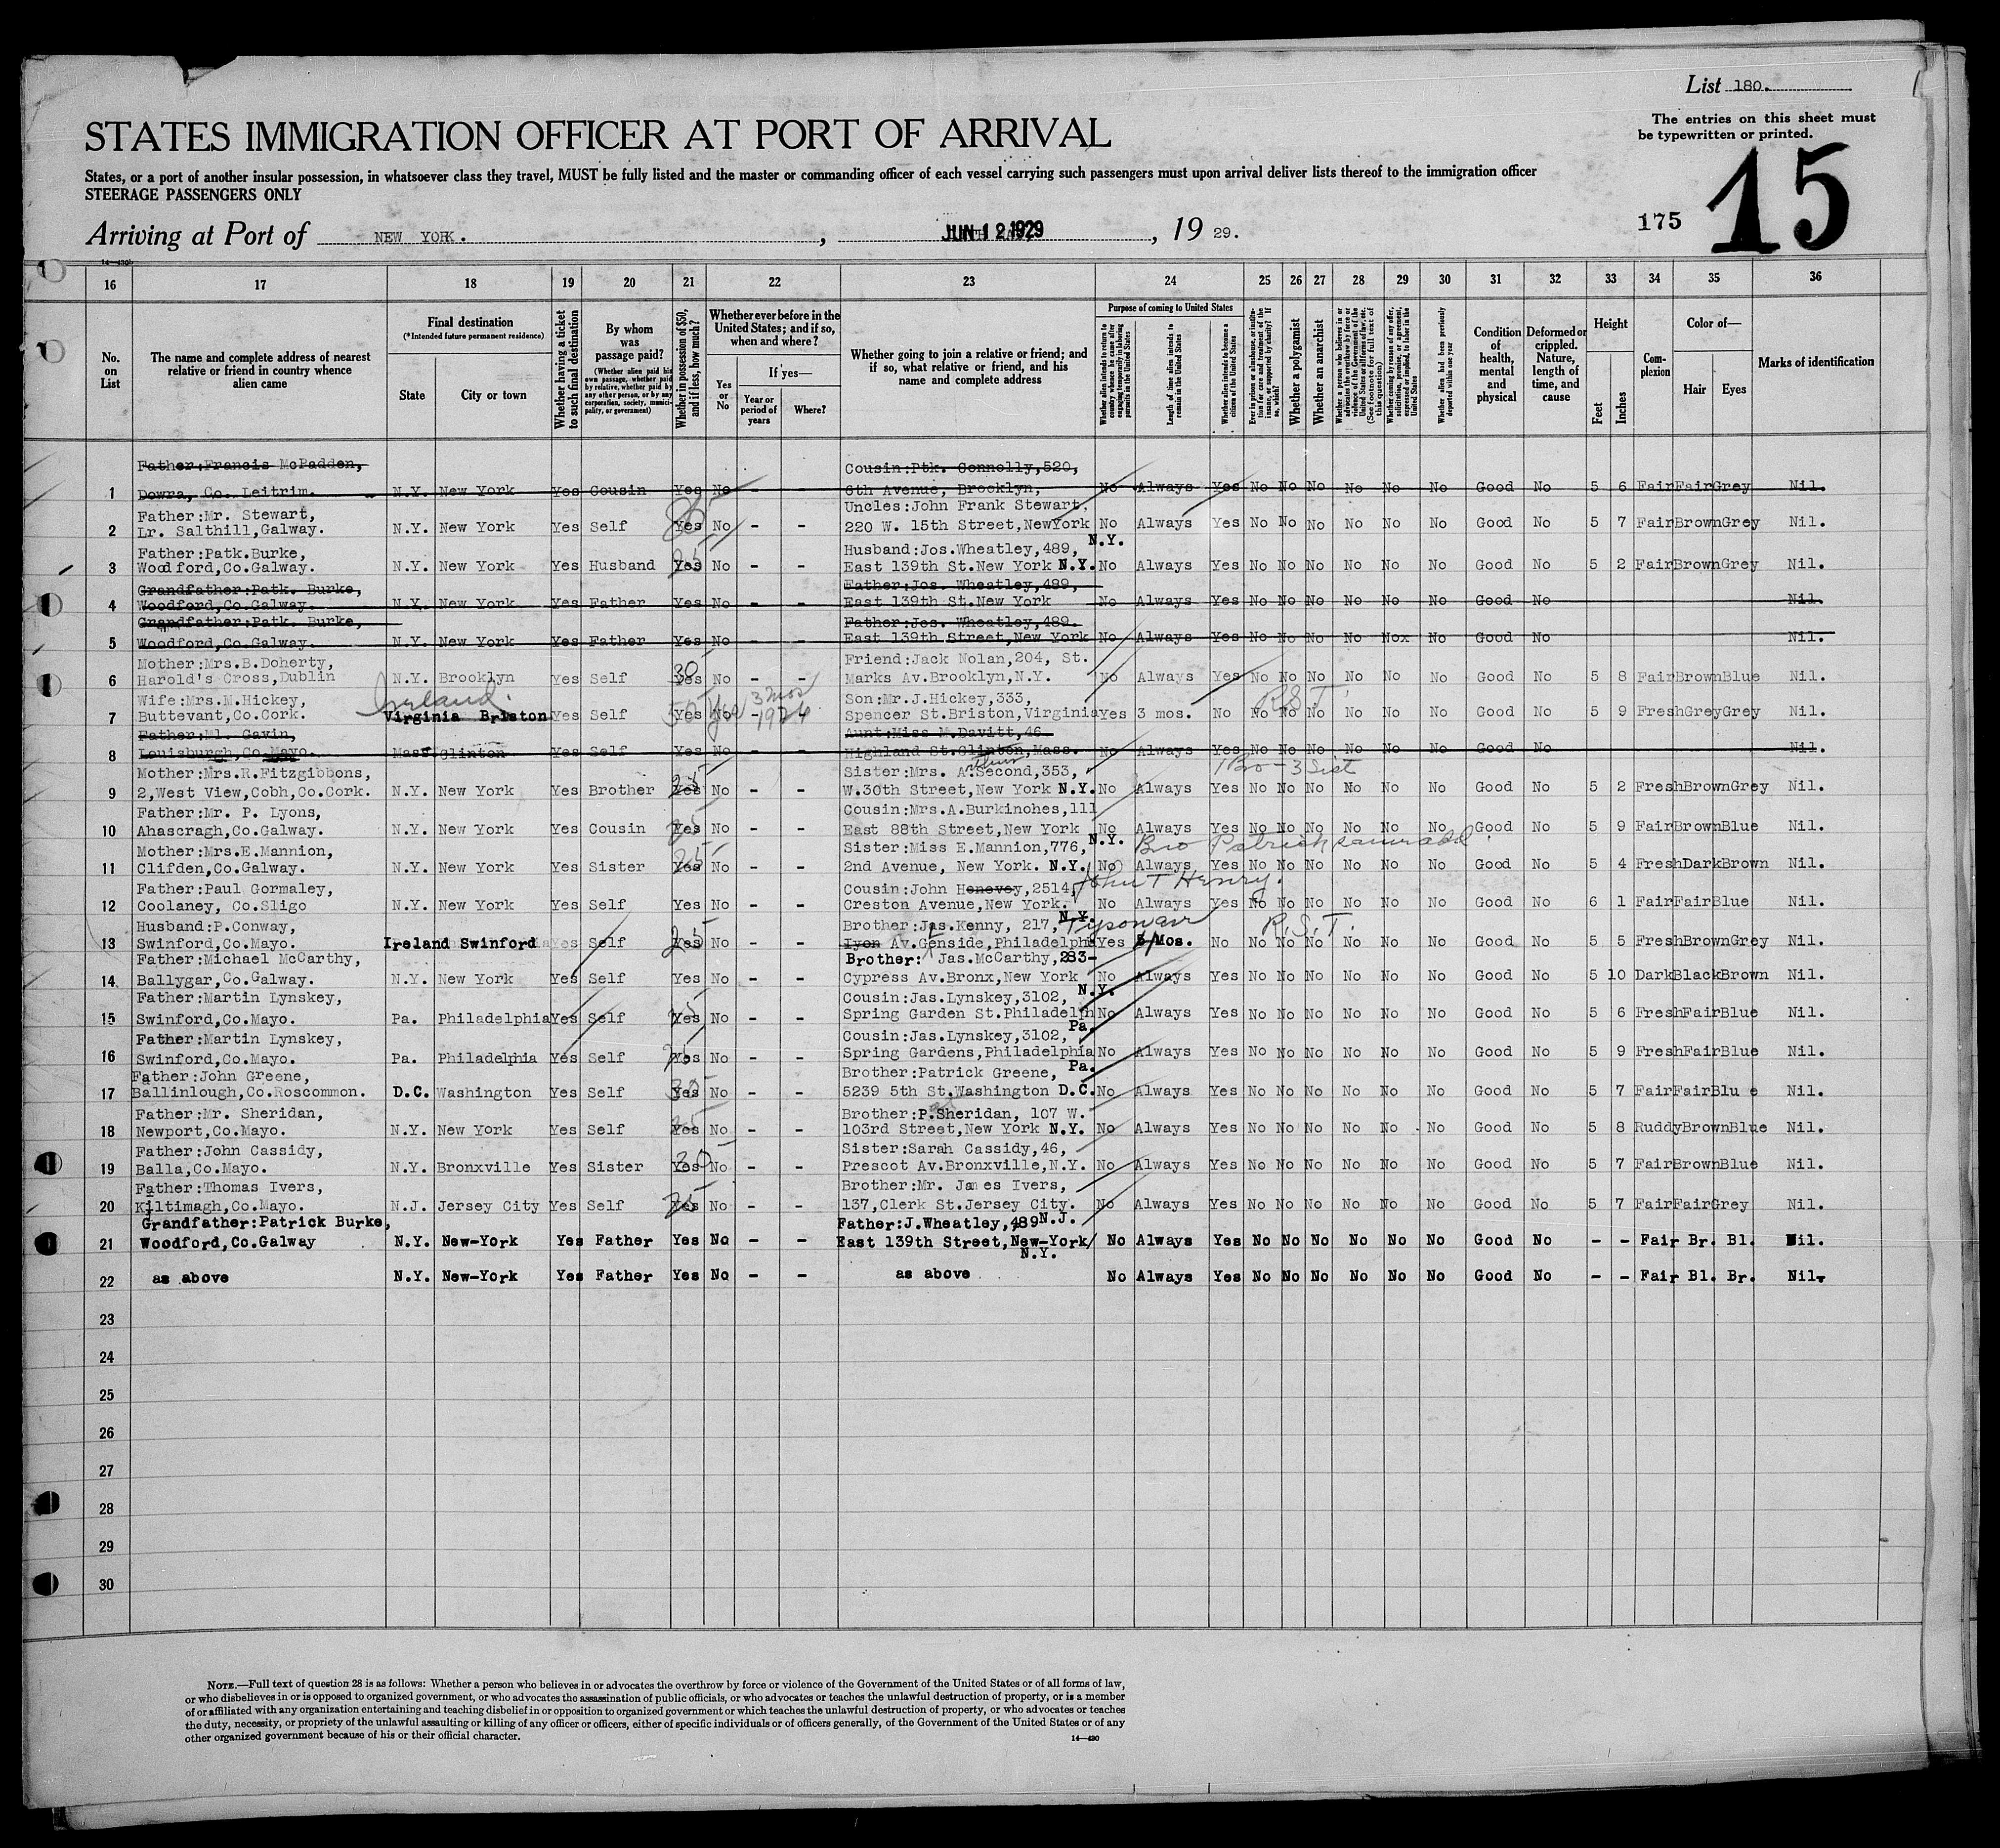 List 180.
The entries on this sheet must
be typewritten or printed.
STATES IMMIGRATION OFFICER AT PORT OF ARRIVAL
States, or a port of another insular possession, in whatsoever class they travel, MUST be fully listed and the master or commanding officer of each vessel carrying such passengers must upon arrival deliver lists thereof to the immigration officer
STEERAGE PASSENGERS ONLY
175 15
Arriving at Port of NEW YORK. , JUN 12 1929 , 19 29.
16 17 18 19 20 21 22 23 24 25 26 27 28 29 30 31 32 33 34 35 36
No. on List
The name and complete address of nearest relative or friend in country whence alien came
Final destination
(*Intended future permanent residence)
State
City or town
Whether having a ticket to such final destination
By whom was passage paid?
(Whether alien paid his own passage, whether paid by relative, whether paid by any other person, or by any corporation, society, municipality, or government)
Whether in possession of $50, and if less, how much?
Whether ever before in the United States; and if so, when and where?
Yes or No
If yes—
Year or period of years
Where?
Whether going to join a relative or friend; and if so, what relative or friend, and his name and complete address
Purpose of coming to United States
Whether alien intends to return to country whence he came after engaging temporarily in laboring pursuits in the United States
Length of time alien intends to remain in the United States
Whether alien intends to become a citizen of the United States
Ever in prison or almshouse, or institution for care and treatment of the insane, or supported by charity? If so, which?
Whether a polygamist
Whether an anarchist
Whether a person who believes in or advocates the overthrow by force or violence of the Government of the United States or all forms of law, etc. (See footnote for full text of this question)
Whether coming by reason of any offer, solicitation, promise, or agreement, expressed or implied, to labor in the United States
Whether alien had been previously deported within one year
Condition of health, mental and physical
Deformed or crippled. Nature, length of time, and cause
Height
Feet
Inches
Complexion
Color of—
Hair
Eyes
Marks of identification
Father:Francis McPadden, Cousin:Ptk. Connolly,520,
1 Dowra, Co. Leitrim. N.Y. New York Yes Cousin Yes No - - 6th Avenue, Brooklyn, No Always Yes No No No No No No Good No 5 6 Fair Fair Grey Nil.
Father:Mr. Stewart, Uncles:John Frank Stewart,
2 Lr. Salthill,Galway. N.Y. New York Yes Self Yes No - - 220 W. 15th Street,NewYork No Always Yes No No No No No No Good No 5 7 Fair Brown Grey Nil.
N.Y.
Father:Patk.Burke, Husband:Jos.Wheatley,489,
3 Woodford,Co.Galway. N.Y. New York Yes Husband 25 Yes No - - East 139th St.New York N.Y. No Always Yes No No No No No No Good No 5 2 Fair Brown Grey Nil.
Grandfather:Patk. Burke, Father:Jos. Wheatley,489,
4 Woodford,Co.Galway. N.Y. New York Yes Father Yes No - - East 139th St.New York No Always Yes No No No No No No Good No Nil.
Grandfather:Patk. Burke, Father:Jos. Wheatley,489.
5 Woodford,Co.Galway. N.Y. New York Yes Father Yes No - - East 139th Street,New York No Always Yes No No No No Nox No Good No Nil.
Mother:Mrs.B.Doherty, Friend:Jack Nolan,204, St.
6 Harold's Cross,Dublin N.Y. Brooklyn Yes Self 30 Yes No - - Marks Av.Brooklyn,N.Y. No Always Yes No No No No No No Good No 5 8 Fair Brown Blue Nil.
Wife:Mrs.M.Hickey, Ireland. 3 mos Son:Mr.J.Hickey,333, R.S.T.
7 Buttevant,Co.Cork. Virginia Briston Yes Self 50 Yes No Yes 1926 - Spencer St.Briston,Virginia Yes 3 mos. No No No No No No No Good No 5 9 Fresh Grey Grey Nil.
Father:Ml. Gavin, Aunt:Miss M.Davitt,46
8 Louisburgh,Co.Mayo. Mass Clinton Yes Self Yes No - - Highland St.Clinton,Mass. No Always Yes No No No No No No Good No Nil.
Mother:Mrs.R.Fitzgibbons, Sister:Mrs. A.Second,353, 1 Bro - 3 Sist
9 2,West View,Cobh,Co.Cork. N.Y. New York Yes Brother 25 Yes No - - W.30th Street,New York N.Y. No Always Yes No No No No No No Good No 5 2 Fresh Brown Grey Nil.
Father:Mr. P. Lyons, Cousin:Mrs.A.Burkinohes,111
10 Ahascragh,Co.Galway. N.Y. New York Yes Cousin 25 Yes No - - East 88th Street,New York No Always Yes No No No No No No Good No 5 9 Fair Brown Blue Nil.
N.Y.
Mother:Mrs.E.Mannion, Sister:Miss E.Mannion,776, Bro Patrick same add.
11 Clifden,Co.Galway. N.Y. New York Yes Sister 25 Yes No - - 2nd Avenue, New York. N.Y. No Always Yes No No No No No No Good No 5 4 Fresh Dark Brown Nil.
Father:Paul Gormaley, Cousin:John Henevey,2514, John T Henry.
12 Coolaney, Co.Sligo N.Y. New York Yes Self Yes No - - Creston Avenue,New York. No Always Yes No No No No No No Good No 6 1 Fair Fair Blue Nil.
N.Y.
Husband:P.Conway, Brother:Jas.Kenny, 217, Tyson ave R.S.T.
13 Swinford,Co.Mayo. Ireland Swinford Yes Self 25 Yes No - - Lyon Av.Genside,Philadelphi Yes Mos. No No No No No No No Good No 5 5 Fresh Brown Grey Nil.
Father:Michael McCarthy, Brother: Jas.McCarthy,283-
14 Ballygar,Co.Galway. N.Y. New York Yes Self Yes No - - Cypress Av.Bronx,New York No Always Yes No No No No No No Good No 5 10 Dark Black Brown Nil.
N.Y.
Father:Martin Lynskey, Cousin:Jas.Lynskey,3102,
15 Swinford,Co.Mayo. Pa. Philadelphia Yes Self 25 Yes No - - Spring Garden St.Philadelph No Always Yes No No No No No No Good No 5 6 Fresh Fair Blue Nil.
Pa.
Father:Martin Lynskey, Cousin:Jas.Lynskey,3102,
16 Swinford,Co.Mayo. Pa. Philadelphia Yes Self 25 Yes No - - Spring Gardens,Philadelphia No Always Yes No No No No No No Good No 5 9 Fresh Fair Blue Nil.
Pa.
Father:John Greene, Brother:Patrick Greene,
17 Ballinlough,Co.Roscommon. D.C. Washington Yes Self Yes No - - 5239 5th St.Washington D.C. No Always Yes No No No No No No Good No 5 7 Fair Fair Blu e Nil.
Father:Mr. Sheridan, Brother:P.Sheridan, 107 W.
18 Newport,Co.Mayo. N.Y. New York Yes Self 25 Yes No - - 103rd Street,New York N.Y. No Always Yes No No No No No No Good No 5 8 Ruddy Brown Blue Nil.
Father:John Cassidy, Sister:Sarah Cassidy,46,
19 Balla,Co.Mayo. N.Y. Bronxville Yes Sister Yes 20 No - - Prescot Av.Bronxville,N.Y. No Always Yes No No No No No No Good No 5 7 Fair Brown Blue Nil.
Father:Thomas Ivers, Brother:Mr. James Ivers,
20 Kiltimagh,Co.Mayo. N.J. Jersey City Yes Self 25 Yes No - - 137,Clerk St.Jersey City. No Always Yes No No No No No No Good No 5 7 Fair Fair Grey Nil.
N.J.
Grandfather:Patrick Burke, Father:J.Wheatley,489
21 Woodford,Co.Galway N.Y. New-York Yes Father Yes No - - East 139th Street,New-York/ No Always Yes No No No No No No Good No - - Fair Br. Bl. Nil.
N.Y.
22 as above N.Y. New-York Yes Father Yes No - - as above No Always Yes No No No No No No Good No - - Fair Bl. Br. Nil.
23
24
25
26
27
28
29
30
NOTE.—Full text of question 28 is as follows: Whether a person who believes in or advocates the overthrow by force or violence of the Government of the United States or of all forms of law,
or who disbelieves in or is opposed to organized government, or who advocates the assassination of public officials, or who advocates or teaches the unlawful destruction of property, or is a member
of or affiliated with any organization entertaining and teaching disbelief in or opposition to organized government or which teaches the unlawful destruction of property, or who advocates or teaches
the duty, necessity, or propriety of the unlawful assaulting or killing of any officer or officers, either of specific individuals or of officers generally, of the Government of the United States or of any
other organized government because of his or their official character. 14—430